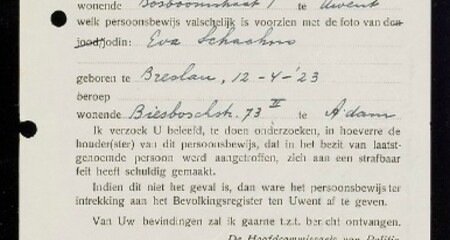 wonende Bosboomstraat 1 te Uwent
welk persoonsbewijs valschelijk is voorzien met de foto van den
jood/jodin: Eva Schachno
geboren te Breslau, 12-4-'23
beroep
wonende Biesboschstr. 73 II te A'dam
Ik verzoek U beleefd, te doen onderzoeken, in hoeverre de
houder(ster) van dit persoonsbewijs, dat in het bezit van laatst-
genoemde persoon werd aangetroffen, zich aan een strafbaar
feit heeft schuldig gemaakt.
Indien dit niet het geval is, dan ware het persoonsbewijs ter
intrekking aan het Bevolkingsregister ten Uwent af te geven.
Van Uw bevindingen zal ik gaarne t.z.t. bericht ontvangen.
De Hoofdcommissaris van Politie